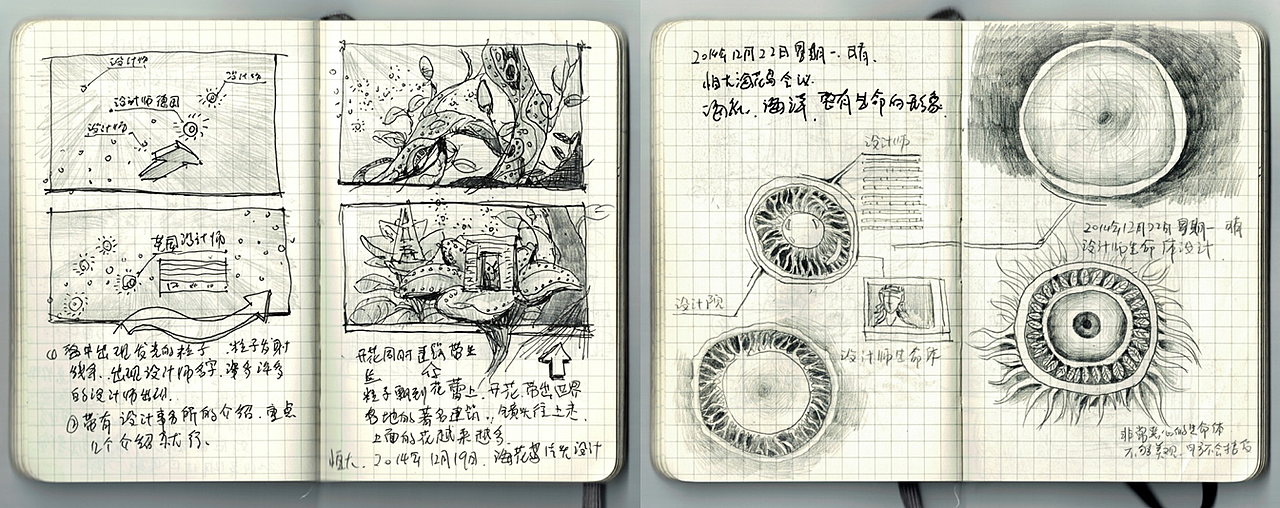 设计师
设计师
设计师德国
设计师
英国设计师
① 空中出现发光的粒子 粒子发射
线条，出现设计师名字，许多许多
的设计师出现
② 带有设计事务所的介绍，重点
几个介绍就行。
开花同时建筑带出
粒子飘到花蕾上，开花，带出世界
各地的著名建筑，镜头往上走
上面的花越来越多
恒大 2014年12月19日 海花岛片头设计
2014年12月22日 星期一 晴
恒大海花岛会议
海 海洋 要有生命的形象
设计师
设计院
设计师生命体
2014年12月22日 星期一 晴
设计师生命体设计
非常恶心的生命体
不够美观